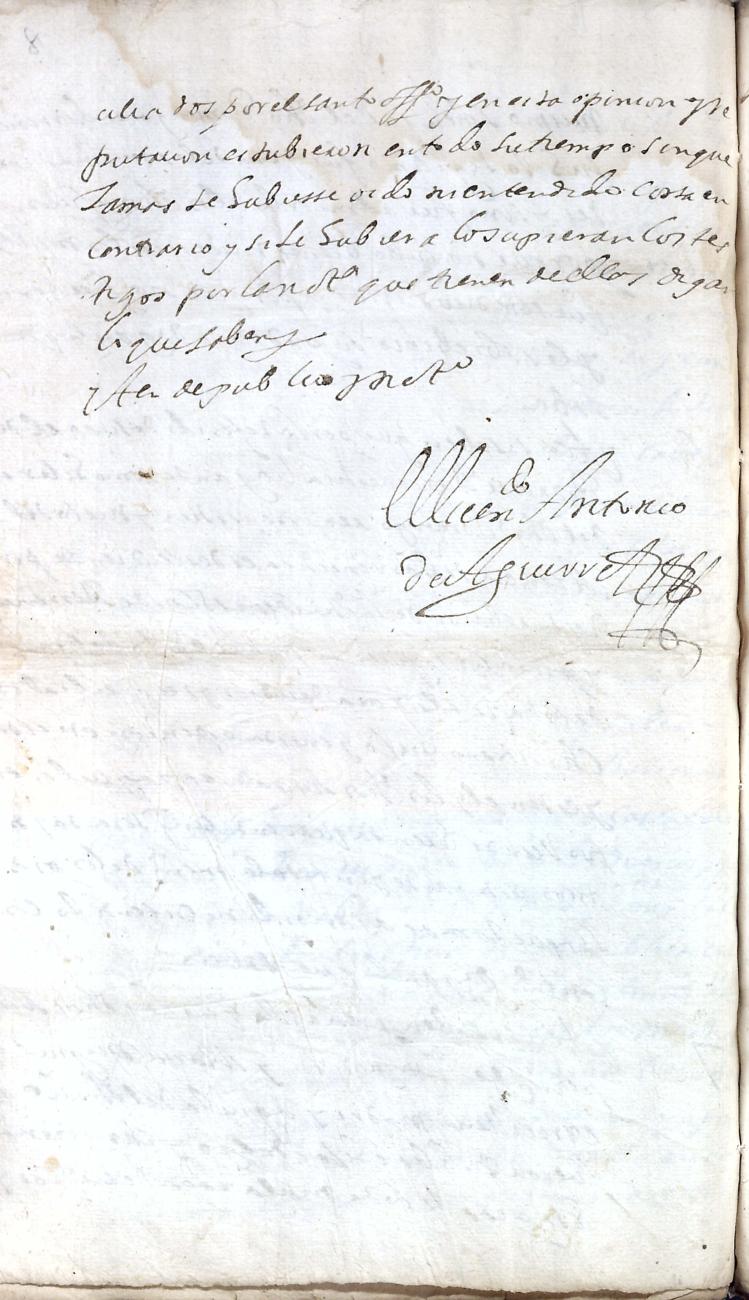 ciliados por el santo offº y en esta opinion y re
putacion estubieron en todo su tiempo sin que
Jamas se hubiesse oido ni entendido cossa en
contrario y si le hubiera lo supieran los tes
tigos por la notª que tienen de ellos digan
lo que saben
yten de publico y notº
Llicendo Antonio
de Aguirre